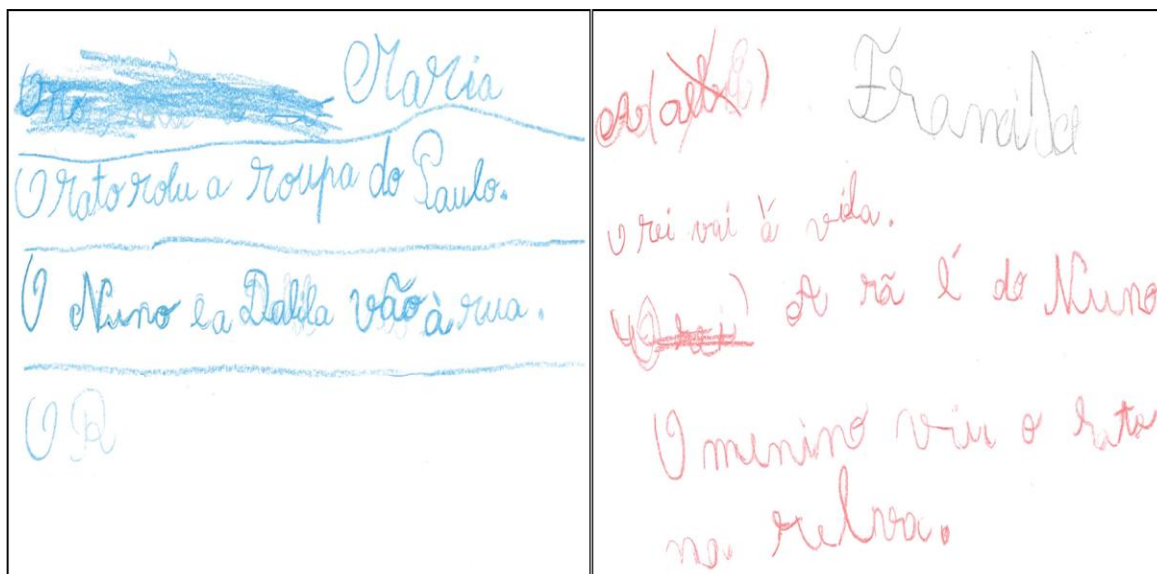 Maria
O rato rolu a roupa do Paulo.
O Nuno e a Dalila vão à rua.
O R
Francisca
O rei vai à vila.
A rã é do Nuno
O menino viu o rato
na relva.